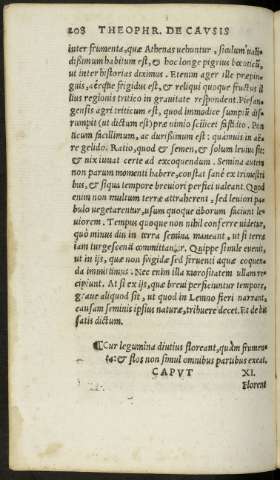 208 THEOPHR. DE CAVSIS
inter frumenta, quæ Athenas vehuntur, siculum vali-
dissimum habitum est, & hoc longe pigrius bœoticū,
inter historias diximus. Etenim ager ille præpin-
guis, aërque frigidus est, & reliqui quoque fructus il
lius regionis tritico in grauitate respondent. Pissan-
gensis agri triticum est, quod immodice sumptū dis-
rumpit (ut dictum est) præ nimio scilicet fastidio. Pon
ticum facillimum, ac durissimum est: quamuis in aë-
re gelido. Ratio, quod & semen, & solum leuius sit:
& nix iuuat certe ad excoquendum. Semina autem
non parum momenti habere, constat sanè ex trimestri
bus, & siqua tempore breuiori perfici valeant. Quod
enim non multum terræ attraherent, sed leuiori pa-
bulo vegetarentur, usum quoque ciborum faciunt le-
uiorem. Tempus quoque non nihil conferre videtur,
quò minus diu in terra semina maneant, ut si terræ
iam turgescenti committantur. Quippe simile euenit,
ut in ijs, quæ non frigidæ sed feruenti aquæ coquen-
da immittimus. Nec enim illa morositatem ullam re-
cipiunt. At si ex ijs, quæ breui perficiuntur tempore,
graue aliquod sit, ut quod in Lemno fieri narrant,
causam seminis ipsius naturæ, tribuere decet. Et de his
satis dictum.
¶Cur legumina diutius floreant, quàm frumen-
ta: & flos non simul omnibus partibus exeat.
CAPVT XI.
Florent